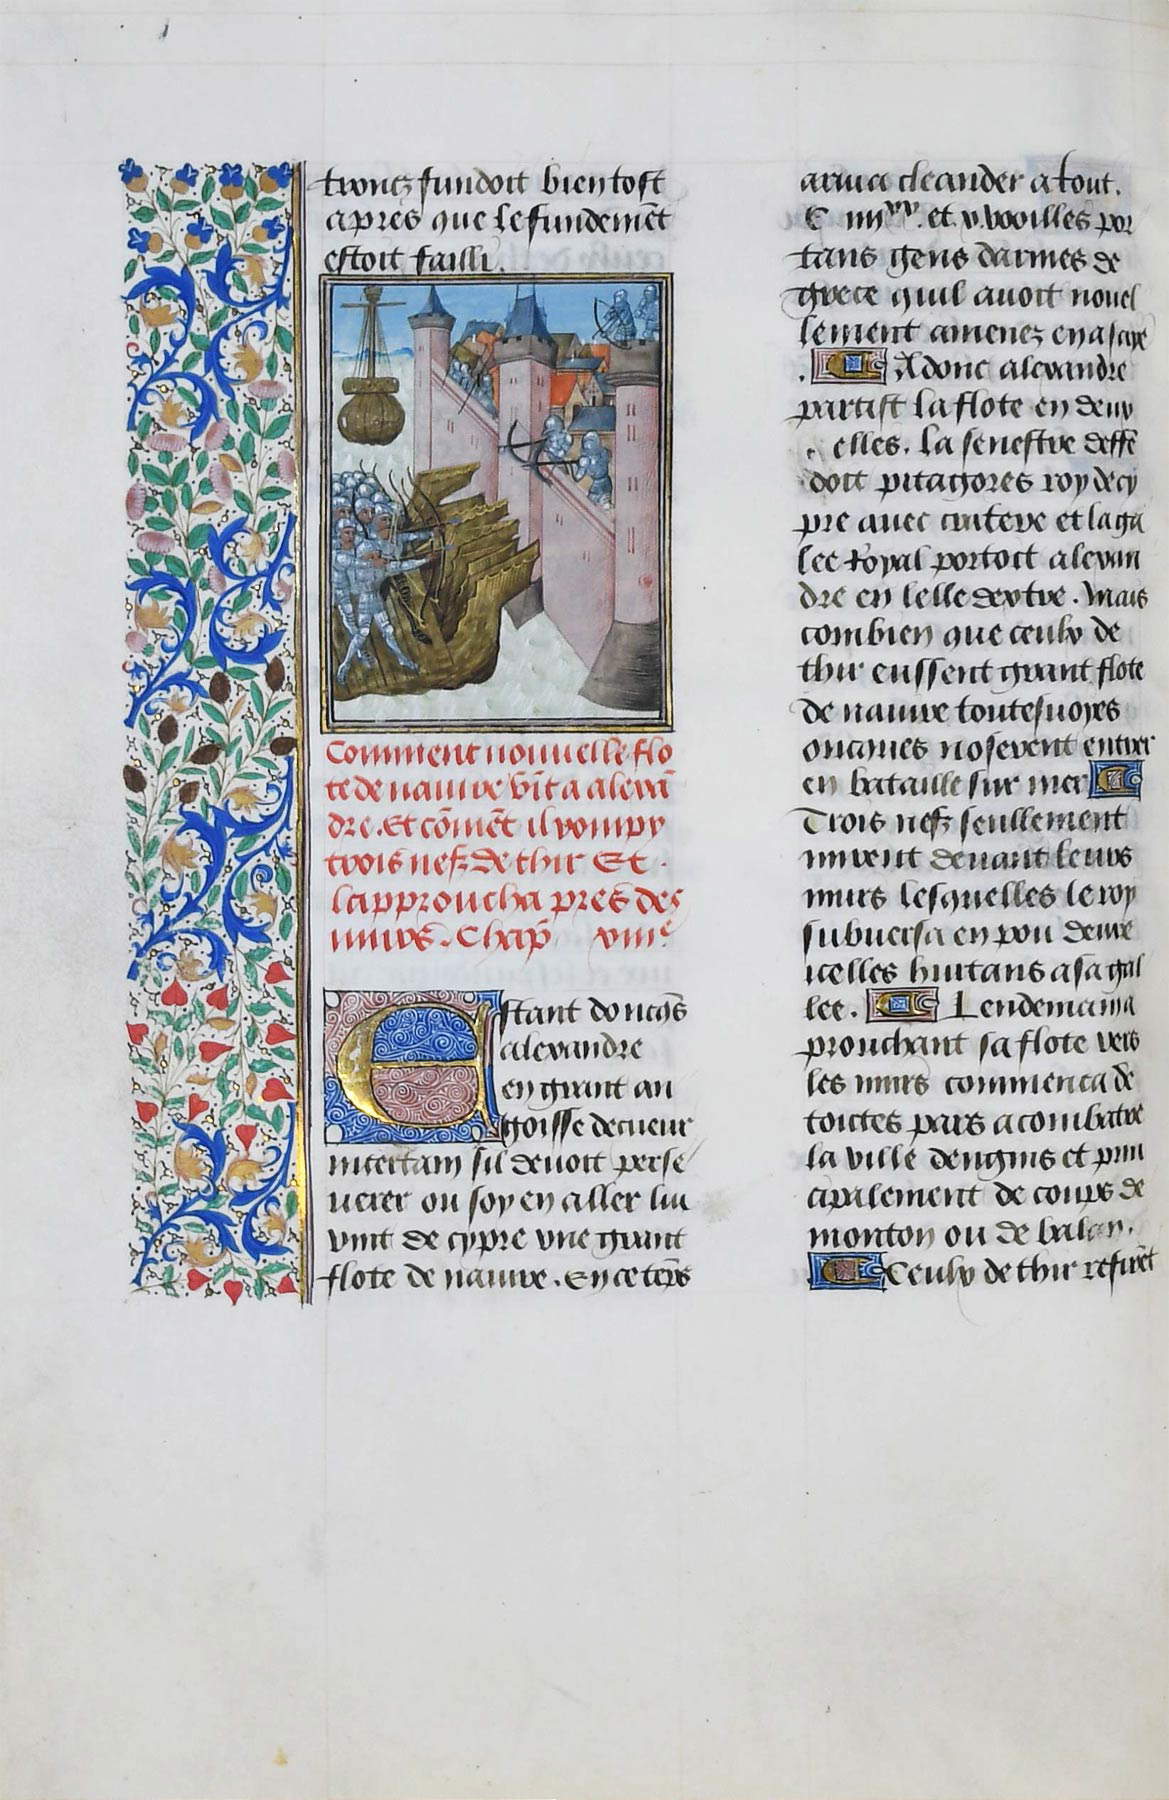 troncz fundoit bien tost
apres que le fundemēt
estoit failli.
Comment nouuelle flo
te de nauire vīt a alexā
dre. Et cōmēt il rompy
trois nefz de thir Et
lapproucha pres des
murs. Chap̄ viii.e
Estant doncq̄s
alexandre
en grant an
goisse de cueur
incertain sil deuoit perse
uerer ou soy en aller luy
vint de cypre vne grant
flote de nauire. En ce tēps
ariua cleander a tout.
C iiii.xx. et x. voilles por
tans gens darmes de
grece quil auoit nouel
lement amenez en asaye
. Adonc alexandre
partist la flote en deux
elles. la senestre deffē
doit pitagores roy de cy
pre auec cratere et la ga
lee Royal portoit alexan
dre en lelle dextre. Mais
combien que ceulx de
thir eussent grant flote
de nauire toutesuoyes
oncques noserent entrer
en bataille sur mer
Trois nefz seullement
mirent deuant leurs
murs lesquelles le roy
subuersa en pou deure
icelles hurtans a sa gal
lee. Lendemain a
prouchant sa flote vers
les murs commenca de
toutes pars a combatre
la ville dengins et prin
cipalement de coups de
monton ou de balan.
Ceulx de thir refirēt